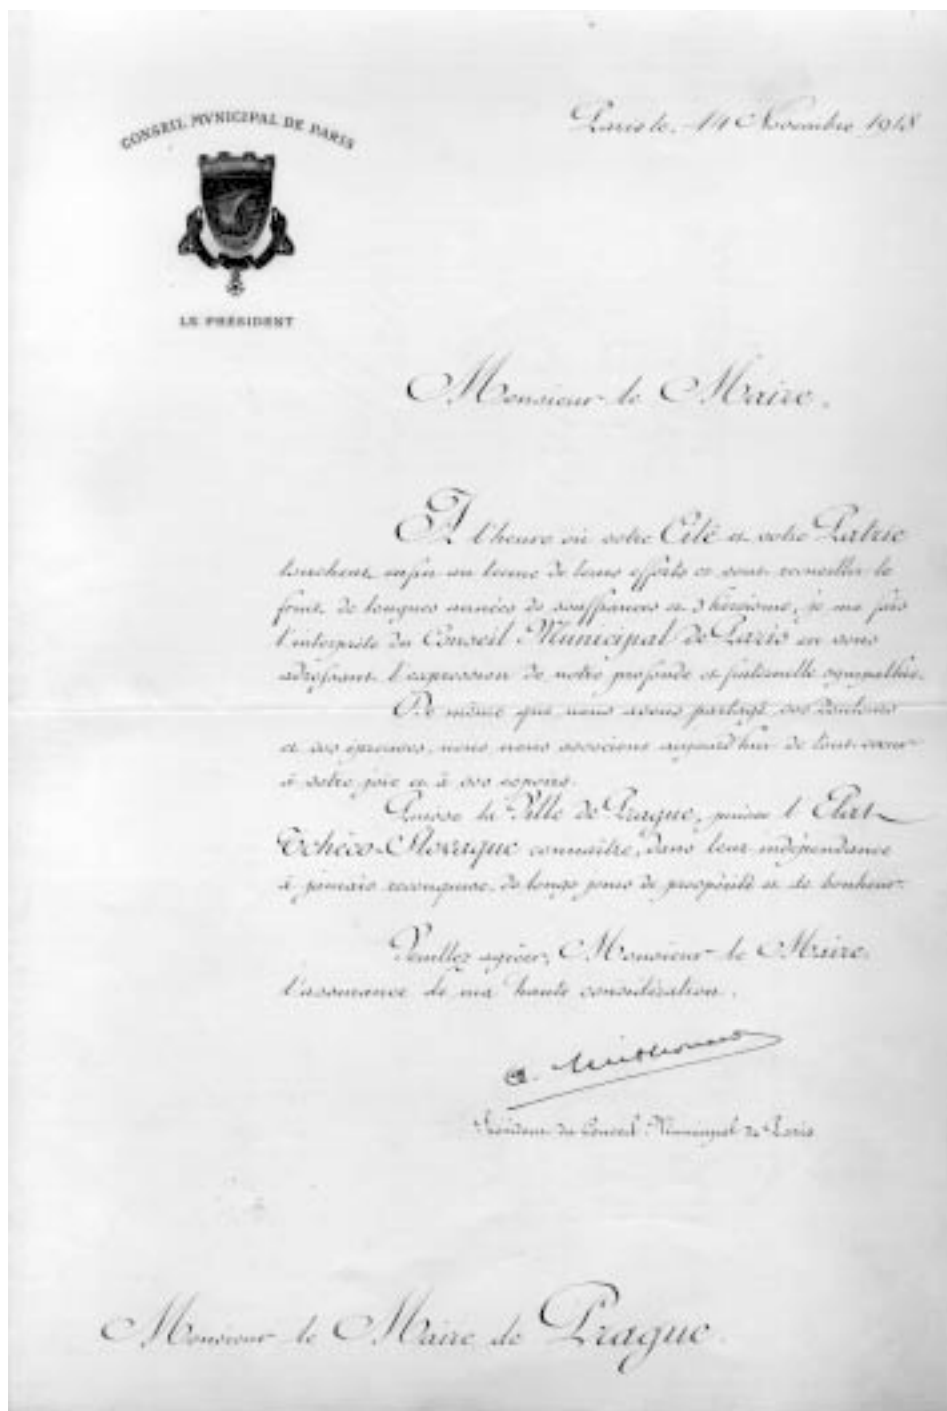 CONSEIL MVNICIPAL DE PARIS
LE PRÉSIDENT
Paris le, 14 Novembre 1918
Monsieur le Maire,
A l'heure où votre Cité et votre Patrie
touchent enfin au terme de leurs efforts et vont recueillir le
fruit de longues années de souffrances et d'héroïsme, je me fais
l'interprète du Conseil Municipal de Paris en vous
adressant l'expression de notre profonde et fraternelle sympathie.
De même que nous avons partagé vos douleurs
et vos épreuves, nous nous associons aujourd'hui de tout cœur
à votre joie et à vos espoirs.
Puisse la Ville de Prague, puisse l'Etat
Tchéco-Slovaque connaître, dans leur indépendance
à jamais reconquise, de longs jours de prospérité et de bonheur.
Veuillez agréer, Monsieur le Maire,
l'assurance de ma haute considération.
Président du Conseil Municipal de Paris
Monsieur le Maire de Prague